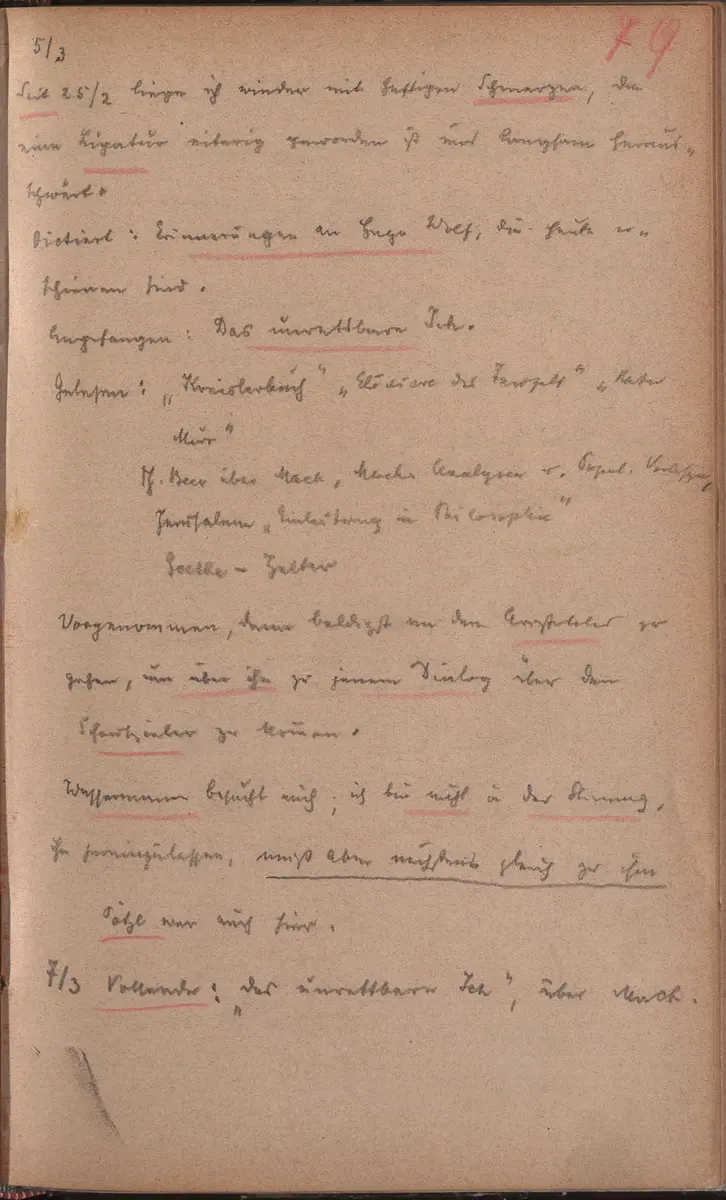 79
5/3
Seit 25/2 liege ich wieder mit heftigen Schmerzen, da
eine Ligatur eiterig geworden ist und langsam heraus„
schwürt.
Dictiert: Erinnerungen an Hugo Wolf, die heute er„
schienen sind.
Angefangen: Das unrettbare Ich.
Gelesen: „Kreislerbuch" „Elixiere des Teufels" „Kater
Murr"
Th. Beer über Mach, Machs Analysen u. Popul. Vorlesgen,
Jerusalem „Einleitung in Philosophie"
Goethe – Zelter
Vorgenommen, dann baldigst an den Aristoteles zu
gehen, um über ihn zu jenem Dialog über den
Schauspieler zu kommen.
Wassermann besucht mich; ich bin nicht in der Stimmung,
ihn hereinzulassen, muß aber nächstens gleich zu ihm
Pötzl war auch hier.
7/3 Vollendet: „das unrettbare Ich", über Mach.